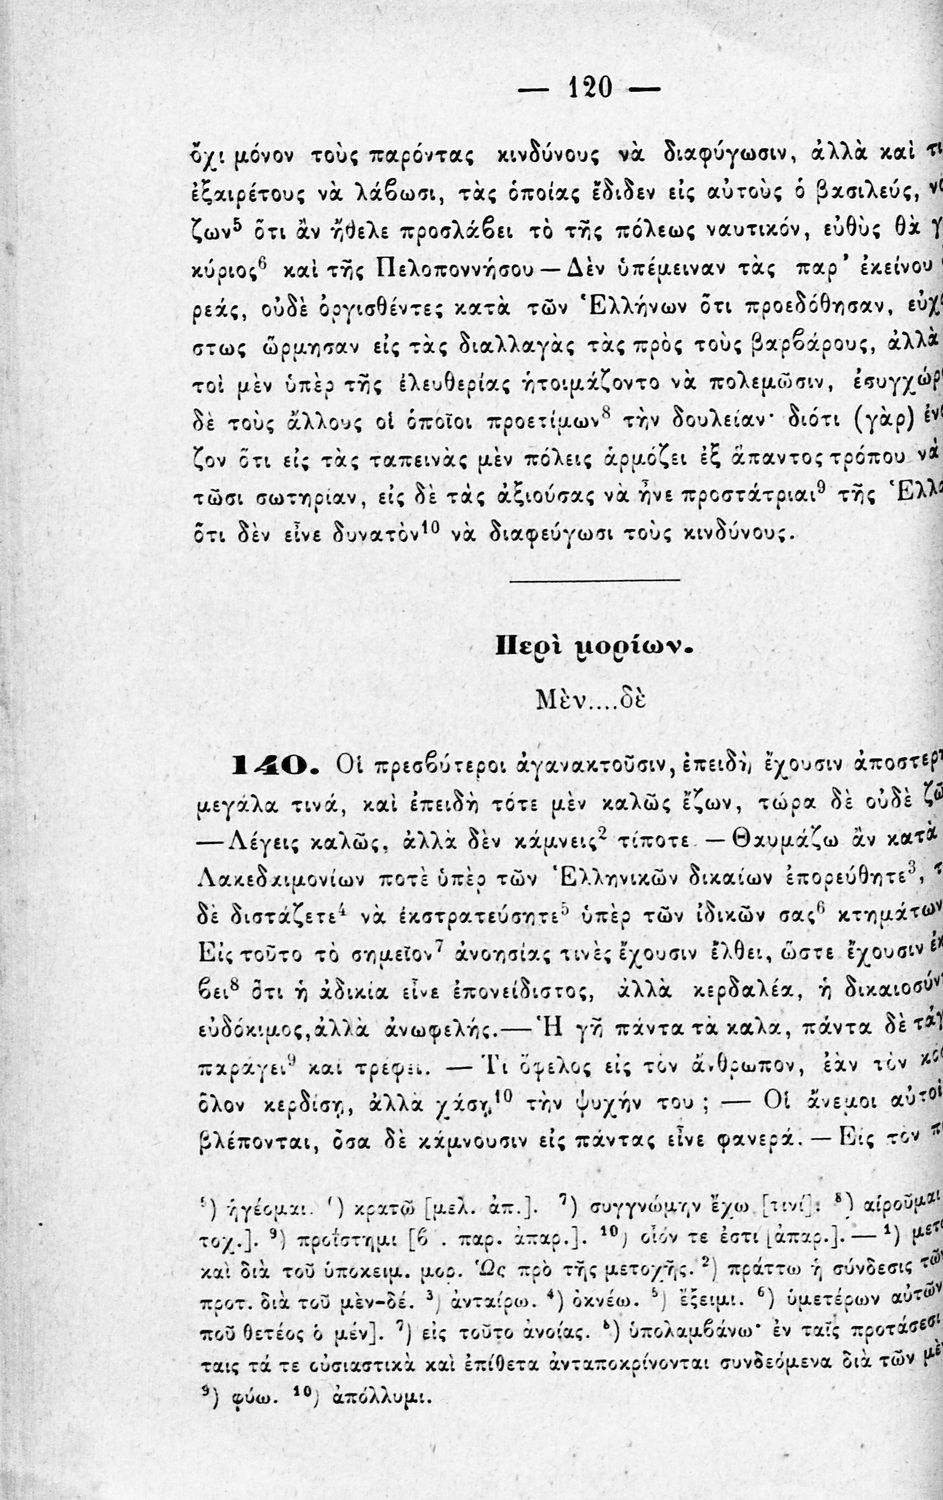 — 120 —
ὄχι μόνον τοὺς παρόντας κινδύνους νὰ διαφύγωσιν, ἀλλὰ καὶ
ἐξαιρέτους νὰ λάβωσι, τὰς ὁποίας ἔδιδεν εἰς αὐτοὺς ὁ βασιλεύς,
ζων⁵ ὅτι ἂν ἤθελε προσλάβει τὸ τῆς πόλεως ναυτικόν, εὐθὺς θὰ
κύριος⁶ καὶ τῆς Πελοποννήσου — Δὲν ὑπέμειναν τὰς παρ’ ἐκείνου
ρεάς, οὐδὲ ὀργισθέντες κατὰ τῶν Ἑλλήνων ὅτι προεδόθησαν,
στως ὥρμησαν εἰς τὰς διαλλαγὰς τὰς πρὸς τοὺς βαρβάρους, ἀλλὰ
τοὶ μὲν ὑπὲρ τῆς ἐλευθερίας ἡτοιμάζοντο νὰ πολεμῶσιν,
δὲ τοὺς ἄλλους οἱ ὁποῖοι προετίμων⁸ τὴν δουλείαν· διότι (γὰρ)
ζον ὅτι εἰς τὰς ταπεινὰς μὲν πόλεις ἁρμόζει ἐξ ἅπαντος τρόπου νὰ
τῶσι σωτηρίαν, εἰς δὲ τὰς ἀξιούσας νὰ ἦνε προστάτριαι⁹ τῆς
ὅτι δὲν εἶνε δυνατὸν¹⁰ νὰ διαφεύγωσι τοὺς κινδύνους.
Περὶ μορίων.
Μὲν....δὲ
140. Οἱ πρεσβύτεροι ἀγανακτοῦσιν, ἐπειδὴ ἔχουσιν
μεγάλα τινά, καὶ ἐπειδὴ τότε μὲν καλῶς ἔζων, τώρα δὲ οὐδὲ
— Λέγεις καλῶς, ἀλλὰ δὲν κάμνεις² τίποτε — Θαυμάζω ἂν κατὰ
Λακεδαιμονίων ποτὲ ὑπὲρ τῶν Ἑλληνικῶν δικαίων ἐπορεύθητε³,
δὲ διστάζετε⁴ νὰ ἐκστρατεύσητε⁵ ὑπὲρ τῶν ἰδικῶν σας⁶ κτημάτων
Εἰς τοῦτο τὸ σημεῖον⁷ ἀνοησίας τινὲς ἔχουσιν ἔλθει, ὥστε ἔχουσιν
βει⁸ ὅτι ἡ ἀδικία εἶνε ἐπονείδιστος, ἀλλὰ κερδαλέα, ἡ
εὐδόκιμος, ἀλλὰ ἀνωφελής. — Ἡ γῆ πάντα τὰ καλα, πάντα δὲ
παράγει⁹ και τρέφει. — Τι ὄφελος εἰς τὸν ἄνθρωπον, ἐὰν τὸν
ὅλον κερδίσῃ, ἀλλὰ χάσῃ¹⁰ τὴν ψυχήν του ; — Οἱ ἄνεμοι
βλέπονται, ὅσα δὲ κάμνουσιν εἰς πάντας εἶνε φανερά. — Εἰς τὸν
⁵) ἡγέομαι. ⁶) κρατῶ [μελ. ἀπ.]. ⁷) συγγνώμην ἔχω [τινί]. ⁸) αἱροῦμαι
τοχ.]. ⁹) προΐστημι [β΄. παρ. ἀπαρ.]. ¹⁰) οἷόν τε ἐστι [ἀπαρ.]. — ¹)
καὶ διὰ τοῦ ὑποκειμ. μορ. Ὡς πρὸ τῆς μετοχῆς. ²) πράττω ἡ σύνδεσις τῶν
προτ. διὰ τοῦ μὲν-δέ. ³) ἀνταίρω. ⁴) ὀκνέω. ⁵) ἔξειμι. ⁶) ὑμετέρων αὐτῶν
ποῦ θετέος ὁ μέν]. ⁷) εἰς τοῦτο ἀνοίας. ⁸) ὑπολαμβάνω· ἐν ταῖς προτάσεσι
ταις τά τε οὐσιαστικὰ καὶ ἐπίθετα ἀνταποκρίνονται συνδεόμενα διὰ τῶν
⁹) φύω. ¹⁰) ἀπόλλυμι.